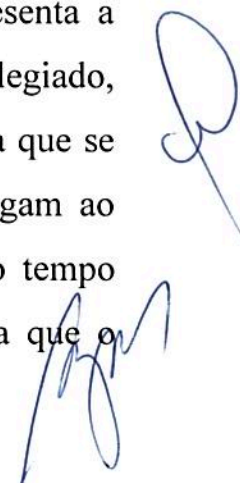 esenta a
legiado,
a que se
gam ao
o tempo
a que o